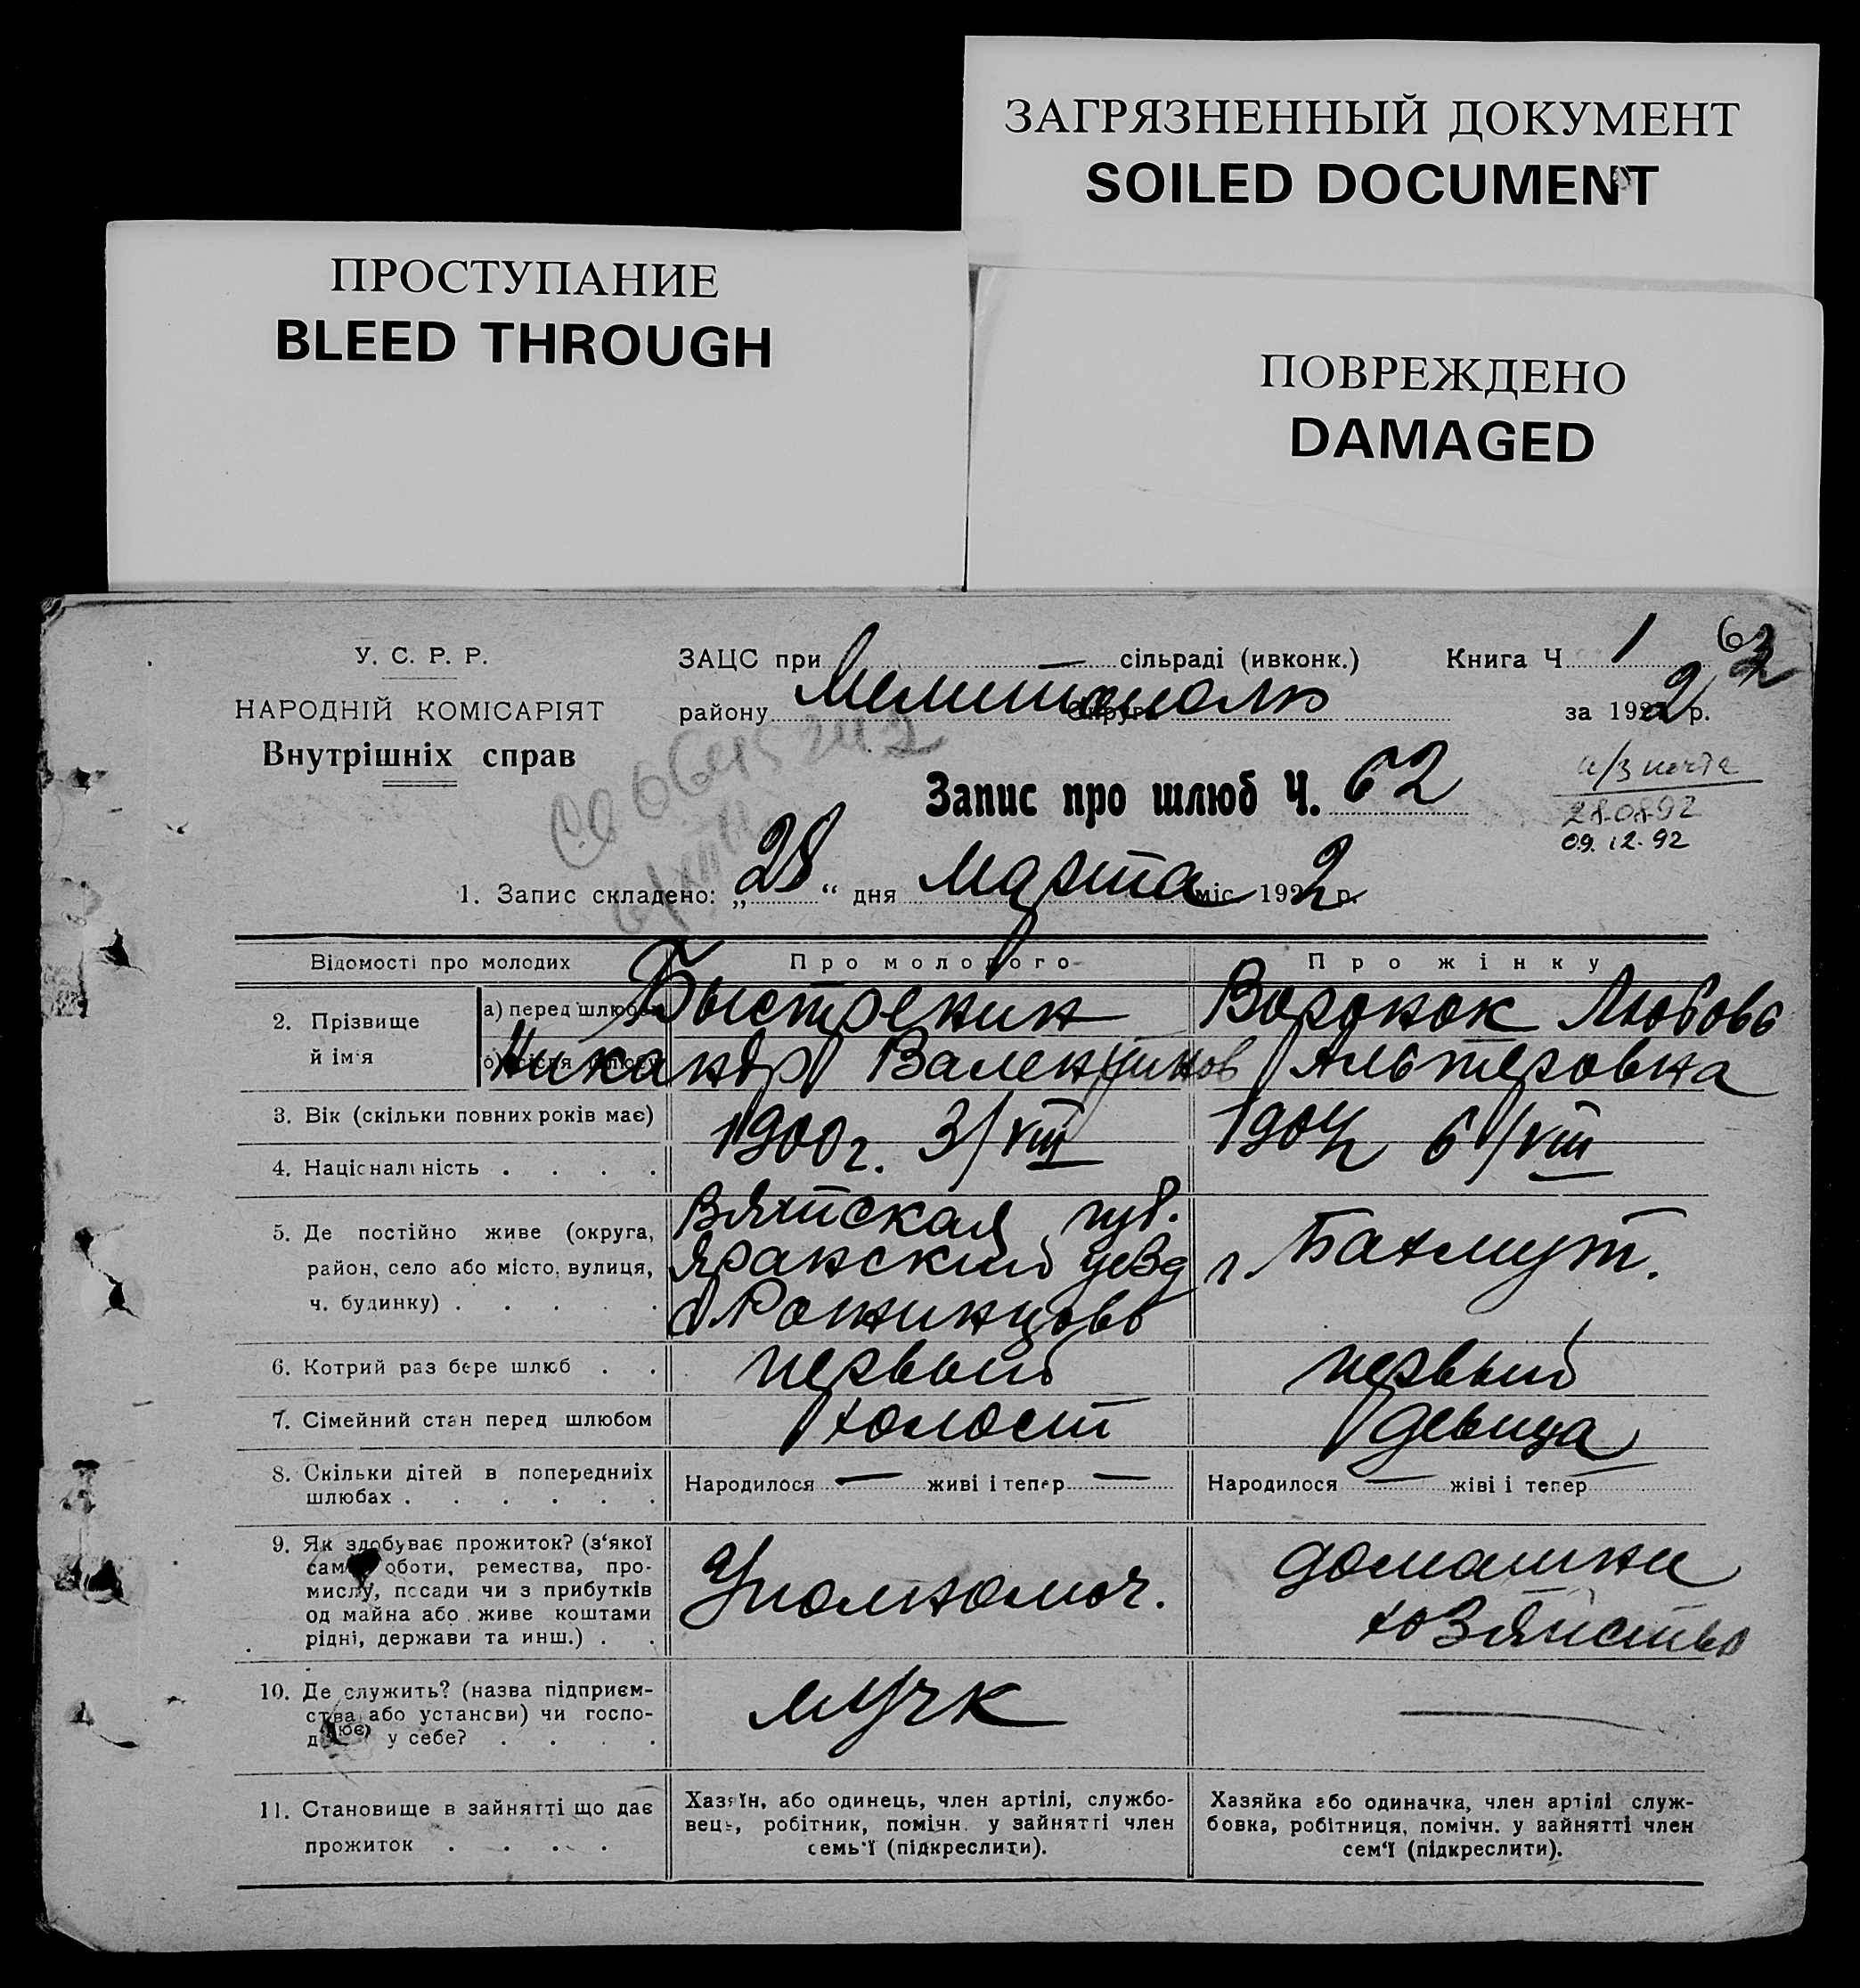 ЗАГРЯЗНЕННЫЙ ДОКУМЕНТ
SOILED DOCUMENT
ПРОСТУПАНИЕ
BLEED THROUGH
ПОВРЕЖДЕНО
DAMAGED
У. С. Р. Р.
НАРОДНІЙ КОМІСАРІЯТ
Внутрішніх справ
ЗАЦС при — сільраді (ивконк.)
району Мелитополь
Книга Ч 1
за 1922 р.
Запис про шлюб Ч. 62
28-08-92
09.12.92
1. Запис складено: „28“ дня Марта міс. 1922 р.
Відомості про молодих Про молодого Про жінку
2. Прізвище й ім'я
а) перед шлюбом Быстренин Воронок Любовь
Никандр Валентинов Альтеровна
3. Вік (скільки повних років має) 1900 г. 3/VIII 1904 6/VIII
4. Національність . . . .
5. Де постійно живе (округа,
район, село або місто, вулиця,
ч. будинку) . . . . .
Вятская губ.
Яранский уезд
г. Бахмут.
6. Котрий раз бере шлюб . . первый первый
7. Сімейний стан перед шлюбом холост девица
8. Скільки дітей в попередниіх
шлюбах . . . . . .
Народилося — живі і тепер —
Народилося — жіві і тепер
9. Як здобуває прожиток? (з‘якої
сам оботи, ремества, про-
мислу, посади чи з прибутків
од майна або живе коштами
рідні, держави та инш.) . .
Уполномоч.
домашни
хозяйство
10. Де служить? (назва підприєм-
ства або установи) чи госпо-
д ює) у себе? . . . .
МУЧК —
11. Становище в зайнятті що дає
прожиток . . . .
Хазяїн, або одинець, член артілі, службо-
вець, робітник, помічн. у зайнятті член
семь'ї (підкреслити).
Хазяйка або одиначка, член артілі служ-
бовка, робітниця, помічн. у зайнятті член
сем‘ї (підкреслити).